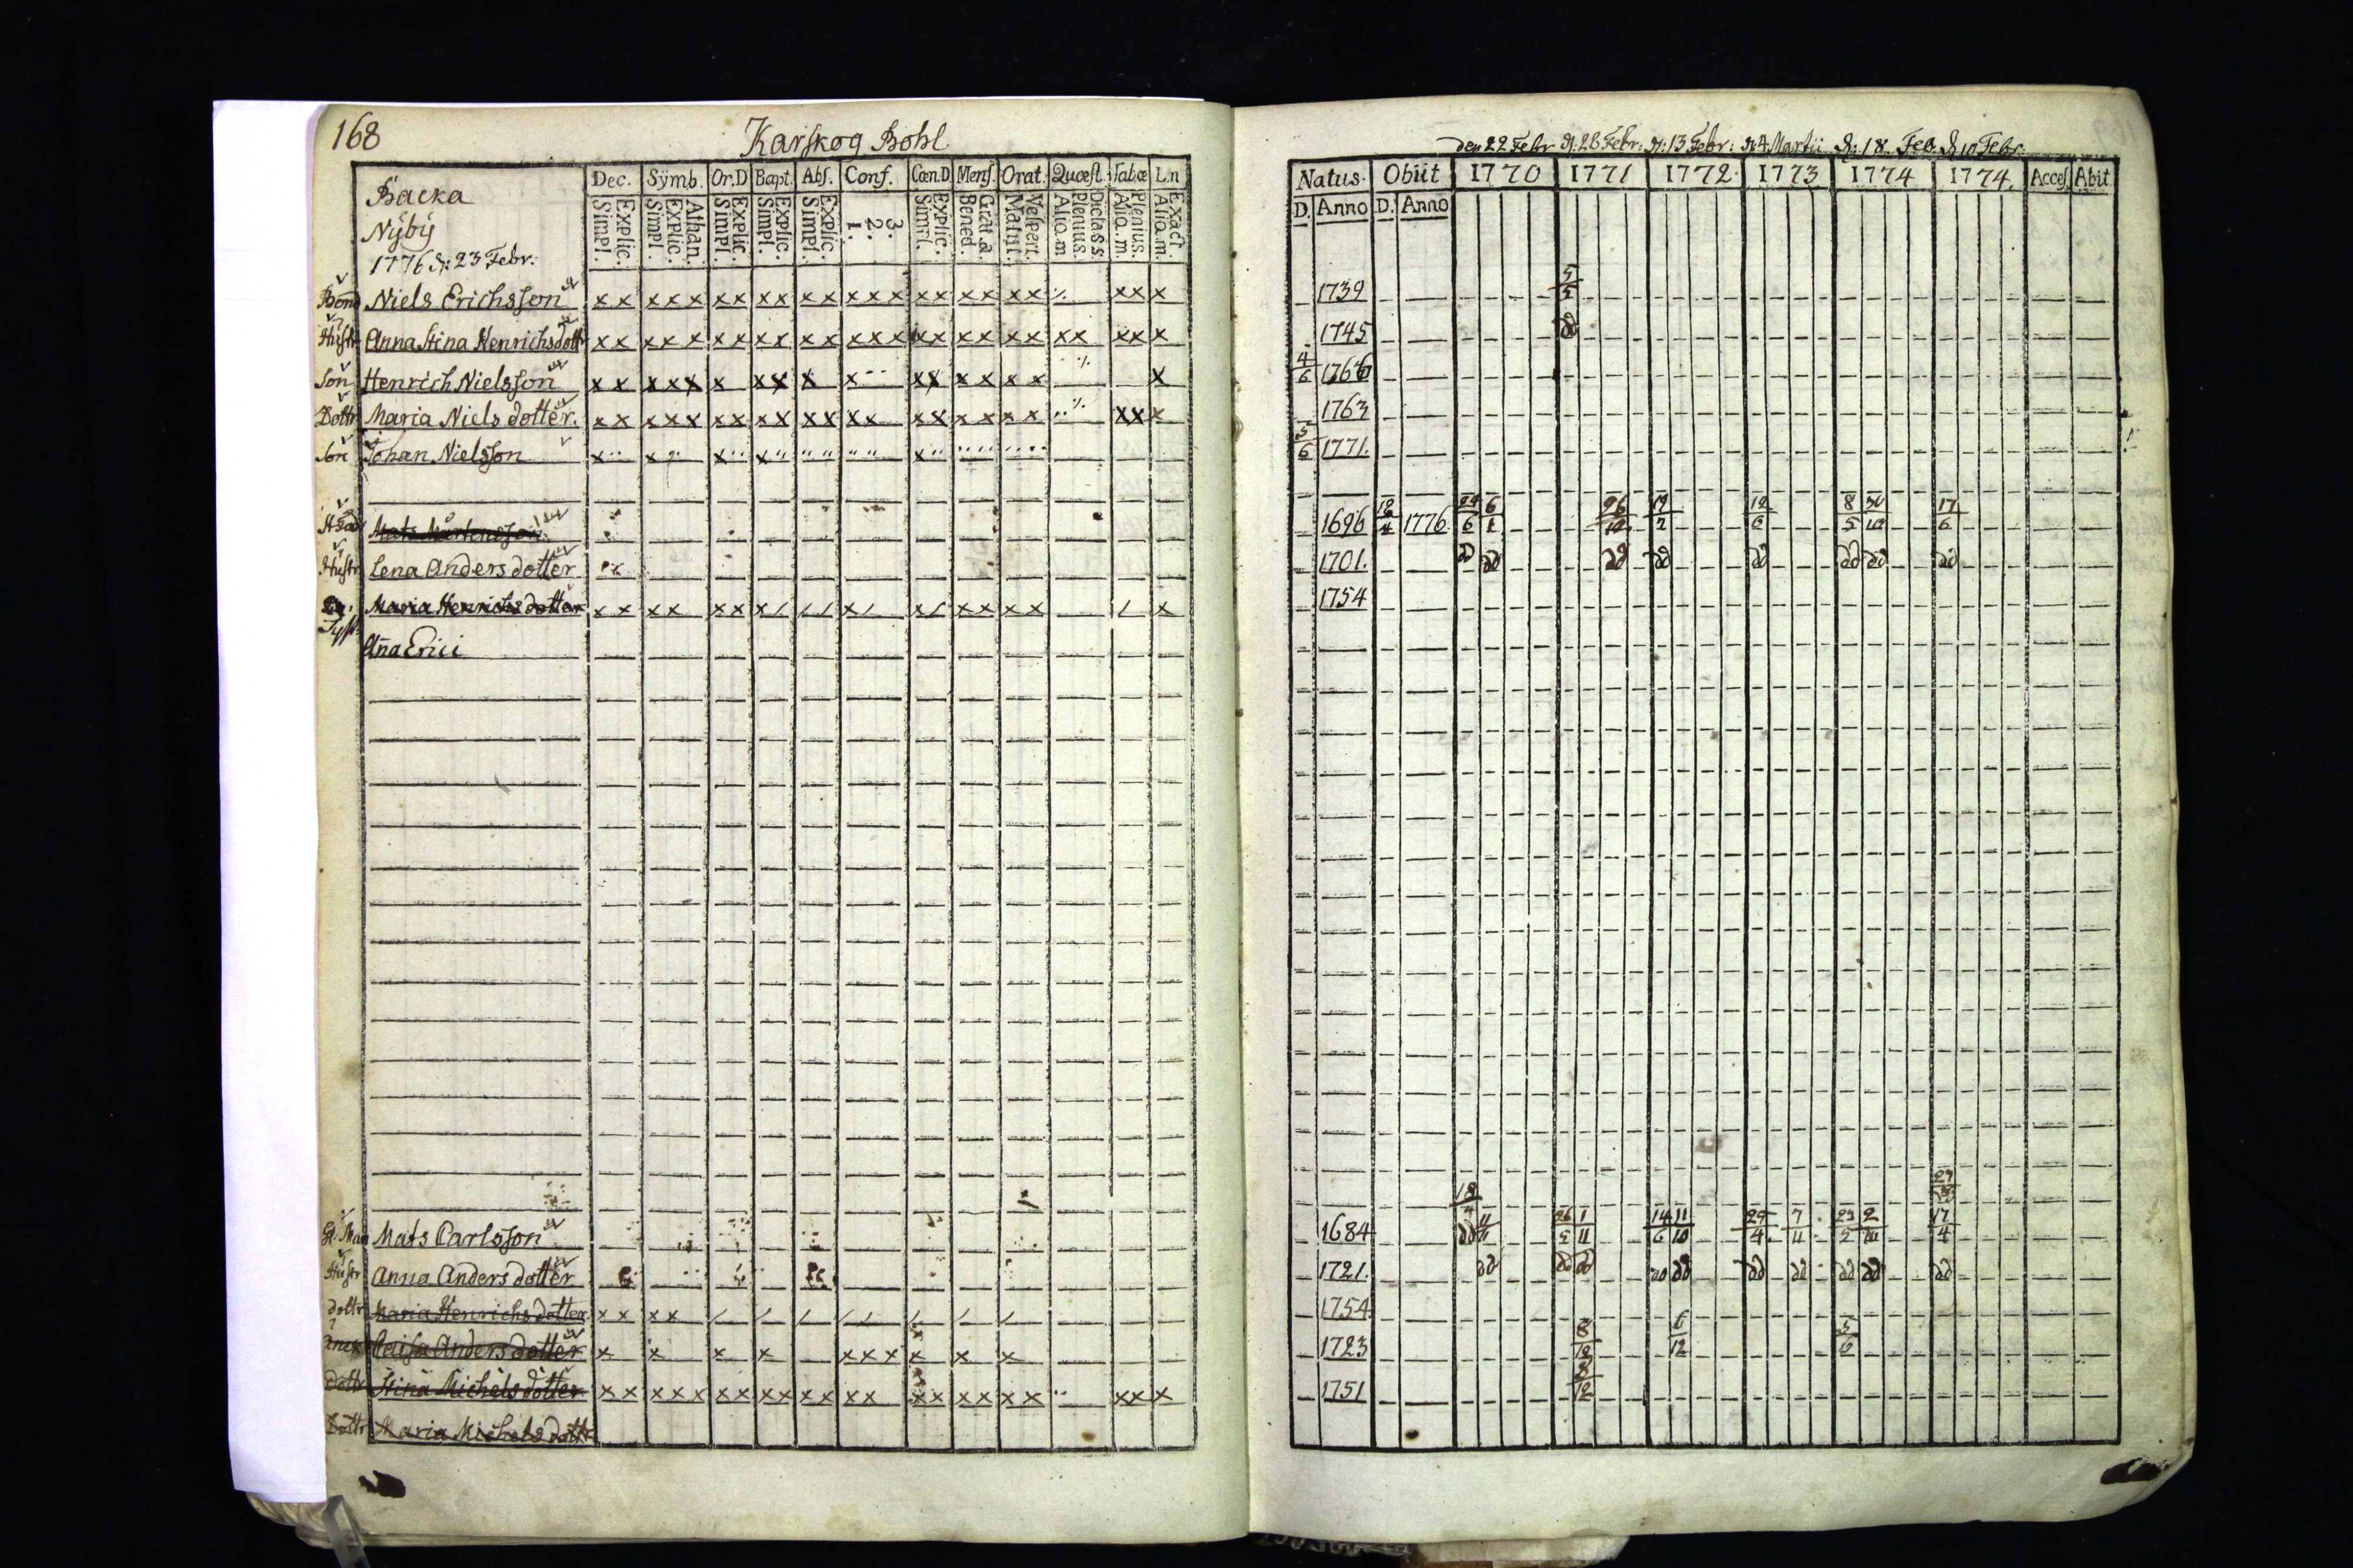 168
Karskog Bohl
Backa
Nÿbÿ
1776 d: 23 Febr:
Dec. Sÿmb. Or.D Bapt. Abs. Conf. Cœn.D Mens. Orat. Quæst. Tabæ L.n
Simpl. Explic. Simpl. Explic. Athan. Simpl. Explic. Simpl. Explic. Simpl. Explic. 1. 2. 3. Simpl. Explic. Bened. Grat.a. Matut. Vespert. Aliq.m Plenius. Dicta s s Aliq.m Plenius. Aliq.m. Exact.
Bond Niels Erichsson x x x x x x x x x x x x x x x x x x x x x x x
Hustr Anna Stina Henrichsdottr x x x x x x x x x x x x x x x x x x x x x x x x x
Son Henrich Nielsson x x x x x x x x x x x x x x x x x
Dottr Maria Niels dotter. x x x x x x x x x x x x x x x x x x x x x x
Son Johan Nielsson x x x x x
Mats Mårtensson
Hustr Lena Anders dotter
Maria Henrichs dotter x x x x x x x x x x x x x x
Aña Erici
Mats Carlsson
Hustr Anna Anders dotter
dottr Maria Henrichs dotter x x x x
Caisa Anders dotter x x x x x x x x x x
Dottr Stina Michels dotter x x x x x x x x x x x x x x x x x x x x x x
Dottr Maria Michels dottr
den 22 Febr d: 26 Febr: d: 13 Febr: d: 4 Martii d: 18 Feb. d 10 Febr.
Natus Obiit 1770 1771 1772 1773 1774 1774. Acces Abit
D. Anno D. Anno
1739 5/5
1745 dd
4/6 1766
1763
5/6 1771.
1696 1776 6/1 17/6
1701. dd dd dd dd dd dd dd dd
1754
1684 18 26/5 1/11 14/6 11/10 29/4 7/11 23/5 2/10 17/4
1721. dd dd dd dd dd dd dd dd dd dd
1754
1723 8/12 6/12 5/6
1751 8/12